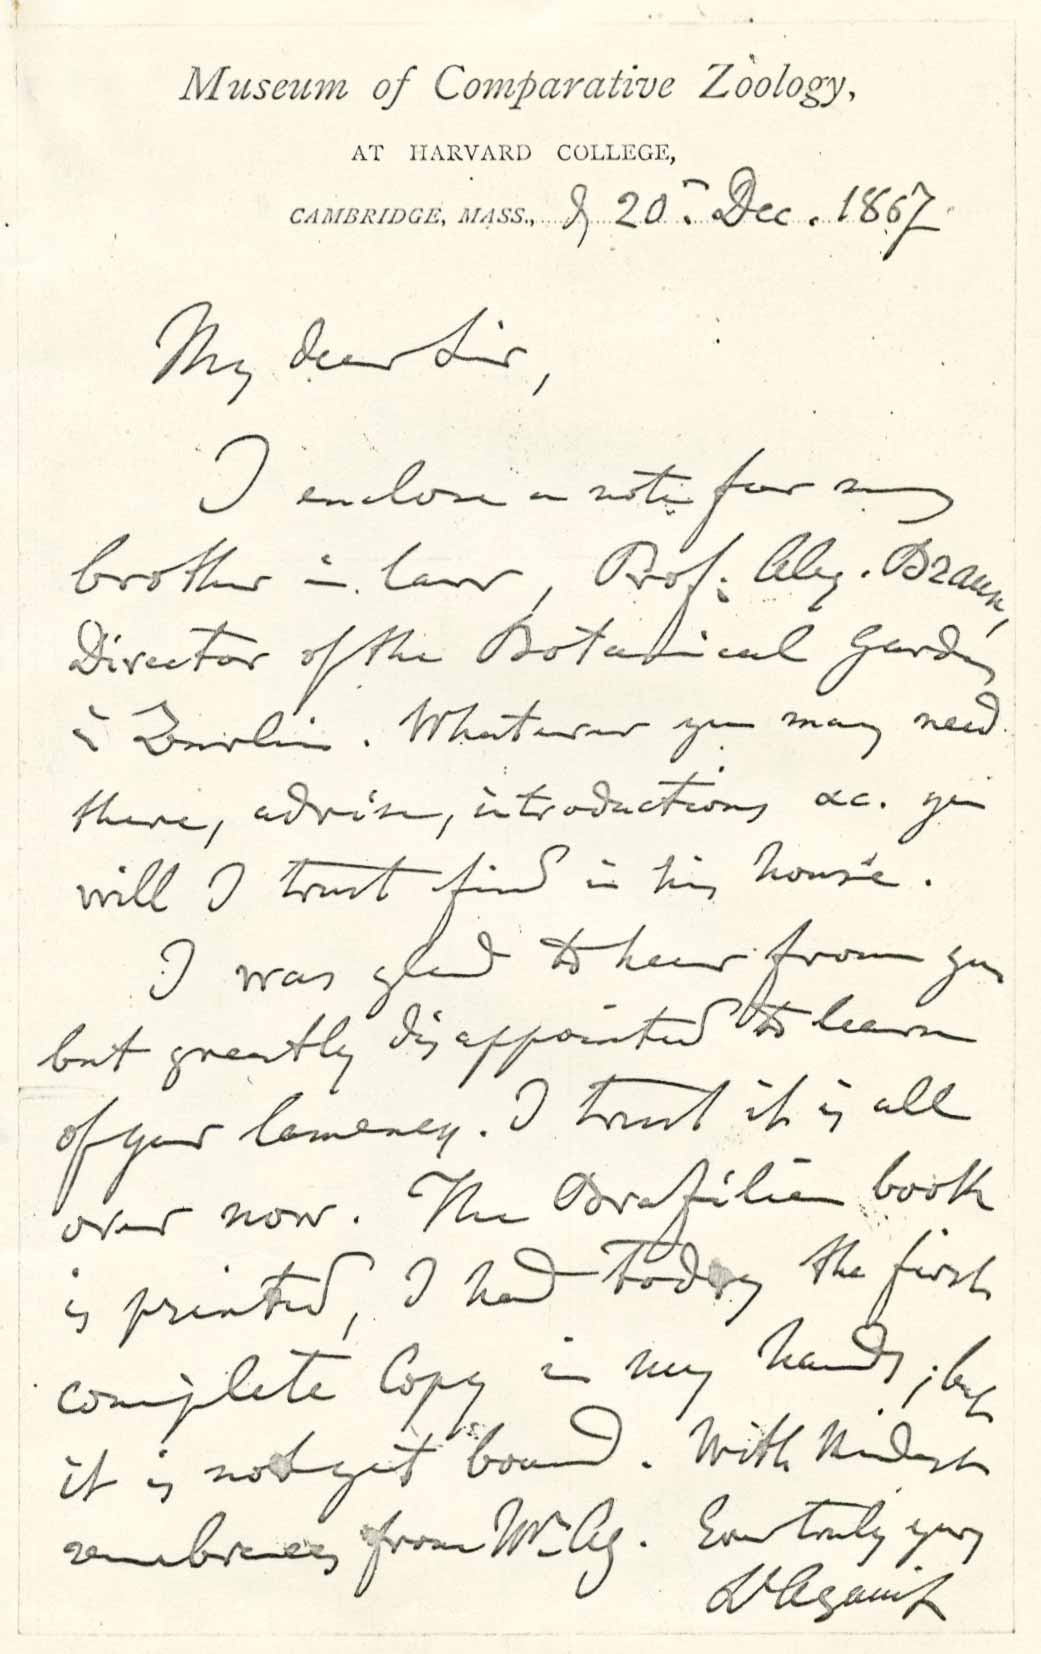 Museum of Comparative Zoology,
AT HARVARD COLLEGE,
CAMBRIDGE, MASS., 20. Dec. 1867
My dear Sir,
I enclose a note for my
brother in law, Prof. Alex. Braun,
Director of the Botanical Garden
in Berlin. Whatever you may need
there, advise, introductions &c. you
will I trust find in his house.
I was glad to hear from you
but greatly disappointed to learn
of your lameness. I trust it is all
over now. The Brazilian book
is printed, I had today the first
complete Copy in my hands; but
it is not yet bound. With kindest
remembrances from Mrs. Ag. Ever truly yours
L Agassiz